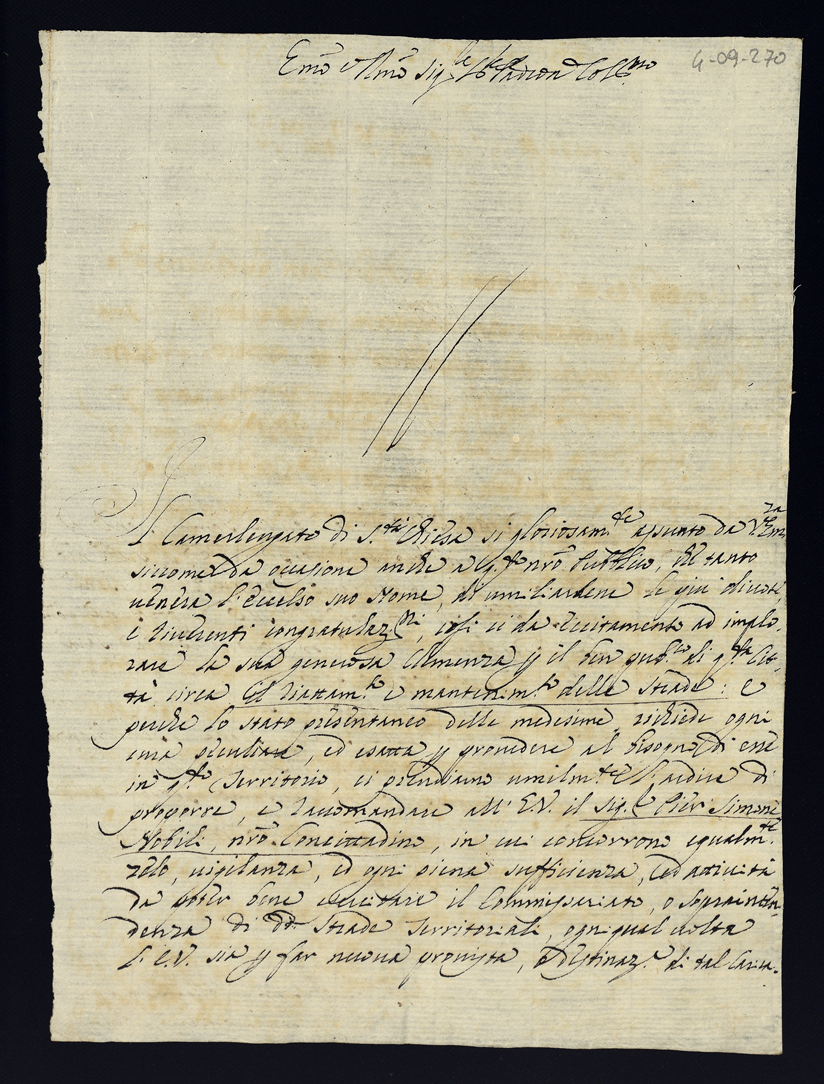 Emo e Rmo Sig.re Pron Colmo
4-09-270
Il Camerlengato di S.ta Chiesa si gloriosam.te assunto da V.ra Em.za
siccome da occasione anche a q.to nro Pubblico, che tanto
venera l'eccelso suo Nome, di umiliardene le più divote,
e riverenti congratulaz.ni, così ci da eccitamento ad implo-
rare la sua generosa Clemenza p il ben pub.co di q.ta Cit-
tà circa il riattam.to e mantenim.to delle Strade: e
perche lo stato presentaneo delle medesime, richiede ogni
cura peculiare, ed esatta p provedere al bisogno di esse
in q.to Territorio, ci prendiamo umilm.te l'ardire di
proporre, e raccomandare all' E.V. il Sig.r Pier Simone
Nobili, nro Concittadino, in cui concorrono egualm.te
zelo, vigilanza, ed ogni piena sufficienza, ed attività
da poter bene esercitare il Commissariato, o Sopraintén-
denza di dte Strade Territoriali, ogni qual volta
l'E.V. sia p far nuova provista, e destinaz.e di tal Carica.